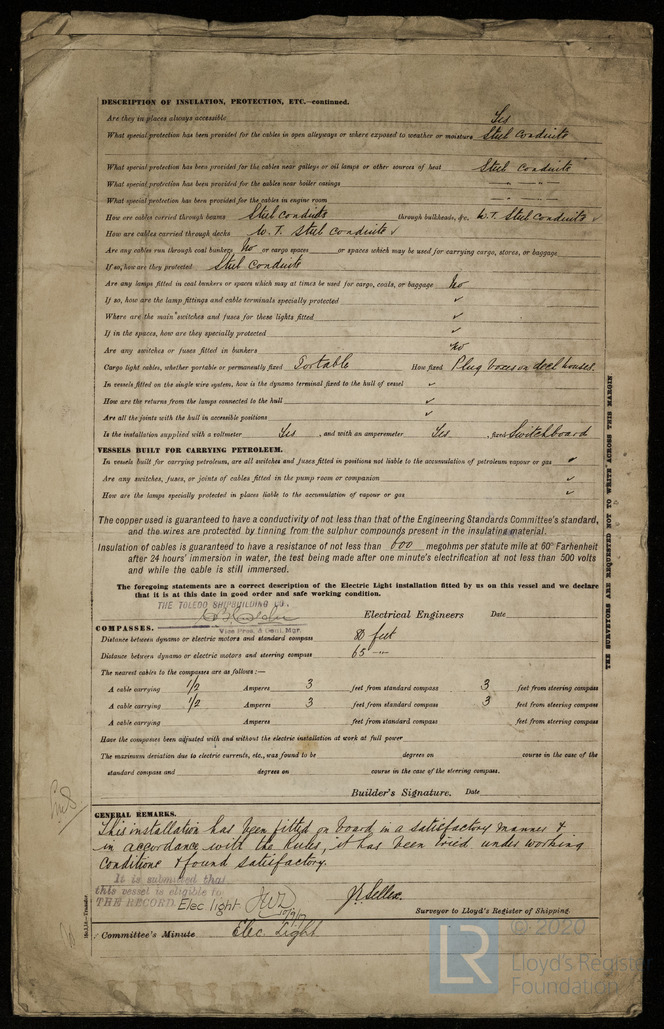 DESCRIPTION OF INSULATION, PROTECTION, ETC.—continued.
Are they in places always accessible Yes
What special protection has been provided for the cables in open alleyways or where exposed to weather or moisture Steel Conduits
What special protection has been provided for the cables near galleys or oil lamps or other sources of heat Steel Conduits
What special protection has been provided for the cables near boiler casings — " —
What special protection has been provided for the cables in engine room — " —
How are cables carried through beams Steel conduits through bulkheads, &c. W.T. Steel Conduits ✓
How are cables carried through decks W.T. Steel conduits ✓
Are any cables run through coal bunkers No or cargo spaces or spaces which may be used for carrying cargo, stores, or baggage
If so, how are they protected Steel Conduits
Are any lamps fitted in coal bunkers or spaces which may at times be used for cargo, coals, or baggage No
If so, how are the lamp fittings and cable terminals specially protected ✓
Where are the main switches and fuses for these lights fitted ✓
If in the spaces, how are they specially protected ✓
Are any switches or fuses fitted in bunkers No
Cargo light cables, whether portable or permanently fixed Portable How fixed Plug boxes on deck houses.
In vessels fitted on the single wire system, how is the dynamo terminal fixed to the hull of vessel ✓
How are the returns from the lamps connected to the hull ✓
Are all the joints with the hull in accessible positions ✓
Is the installation supplied with a voltmeter Yes , and with an amperemeter Yes , fixed Switchboard
VESSELS BUILT FOR CARRYING PETROLEUM.
In vessels built for carrying petroleum, are all switches and fuses fitted in positions not liable to the accumulation of petroleum vapour or gas ✓
Are any switches, fuses, or joints of cables fitted in the pump room or companion ✓
How are the lamps specially protected in places liable to the accumulation of vapour or gas ✓
The copper used is guaranteed to have a conductivity of not less than that of the Engineering Standards Committee's standard,
and the wires are protected by tinning from the sulphur compounds present in the insulating material.
Insulation of cables is guaranteed to have a resistance of not less than 600 megohms per statute mile at 60° Farhenheit
after 24 hours' immersion in water, the test being made after one minute's electrification at not less than 500 volts
and while the cable is still immersed.
The foregoing statements are a correct description of the Electric Light installation fitted by us on this vessel and we declare
that it is at this date in good order and safe working condition.
THE TOLEDO SHIPBUILDING CO.
Electrical Engineers Date
Vice Pres. & Genl. Mgr.
COMPASSES.
Distance between dynamo or electric motors and standard compass 80 feet
Distance between dynamo or electric motors and steering compass 65 — " —
The nearest cables to the compasses are as follows:—
A cable carrying 1/2 Amperes 3 feet from standard compass 3 feet from steering compass
A cable carrying 1/2 Amperes 3 feet from standard compass 3 feet from steering compass
A cable carrying Amperes feet from standard compass feet from steering compass
Have the compasses been adjusted with and without the electric installation at work at full power
The maximum deviation due to electric currents, etc., was found to be degrees on course in the case of the
standard compass and degrees on course in the case of the steering compass.
Builder's Signature. Date
GENERAL REMARKS.
This installation has been fitted on board in a satisfactory manner &
in accordance with the Rules, it has been tried under working
conditions & found satisfactory.
It is submitted that
this vessel is eligible to
THE RECORD. Elec light JWD
10/9/17
Surveyor to Lloyd's Register of Shipping
Committee's Minute Elec. Light
THE SURVEYORS ARE REQUESTED NOT TO WRITE ACROSS THIS MARGIN
LR
© 2020
Lloyd's Register
Foundation